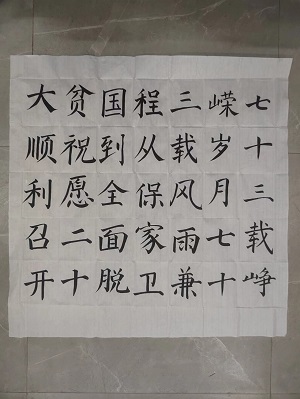 七十三载峥
嵘岁月七十
三载风雨兼
程从保家卫
国到全面脱
贫祝愿二十
大顺利召开